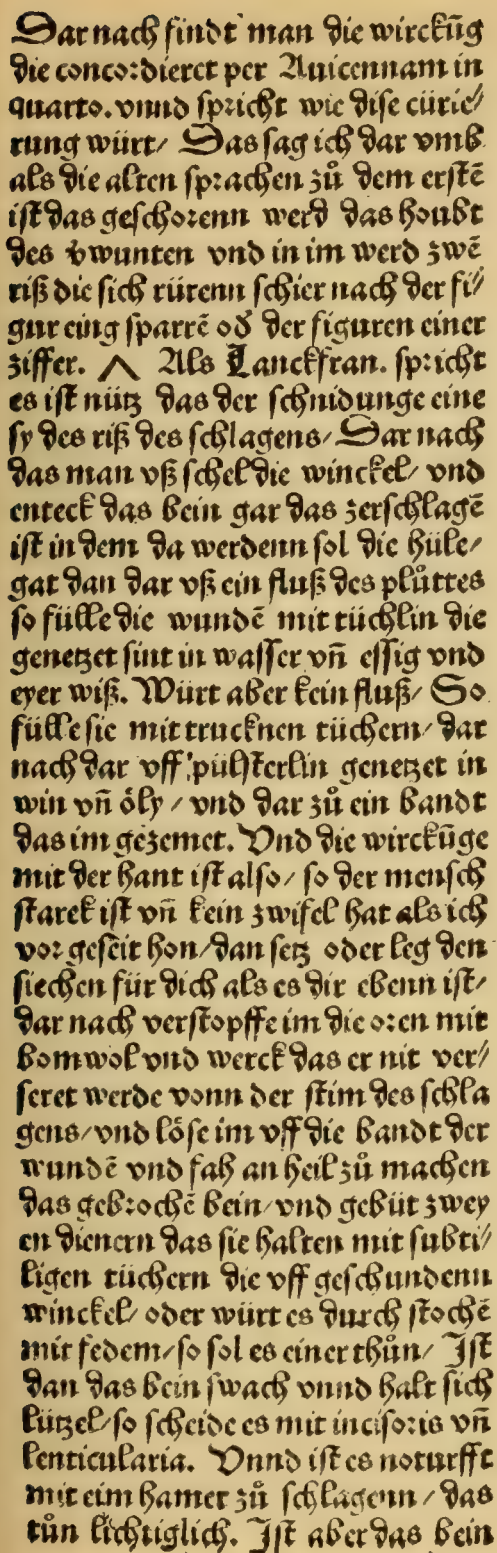 Dar nach findt man die wirckūg
die concordieret per Auicennam in
quarto. vnnd spricht wie dise cürie/
rung würt/ Das sag ich dar vmb
als die alten sprachen zů dem erstē
ist das geschorenn werd das houbt
des vwunten vnd in im werd zwē
riß die sich rürenn schier nach der fi/
gur eins sparrē od der figuren einer
ziffer. Λ Als Lanckfran. spricht
es ist nütz das der schnidunge eine
sy des riß des schlagens/ Dar nach
das man vß schel die winckel/ vnd
enteck das bein gar das zerschlagē
ist in dem da werdenn sol die hüle/
gat dan dar vß ein fluß des plůttes
so fülle die wundē mit tüchlin die
genetzet sint in wasser vn̄ essig vnd
eyer wiß. Würt aber kein fluß/ So
fülle sie mit trucknen tüchern/ dar
nach dar vff pülsterlin genetzet in
win vn̄ öly / vnd dar zů ein bandt
das im gezemet. Vnd die wirckūge
mit der hant ist also/ so der mensch
starck ist vn̄ kein zwifel hat als ich
vor geseit hon/ dan setz oder leg den
siechen für dich als es dir ebenn ist/
dar nach verstopffe im die oren mit
bomwol vnd werck das er nit ver/
seret werde vonn der stim des schla
gens/ vnd löse im vff die bandt der
wundē vnd fah an heil zů machen
das gebrochē bein/ vnd gebüt zwey
en dienern das sie halten mit subti/
ligen tüchern die vff geschundenn
winckel/ oder würt es durch stochē
mit fedem/ so sol es einer thůn/ Ist
dan das bein swach vnnd halt sich
lützel/ so scheide es mit incisoria vn̄
lenticularia. Vnnd ist es noturfft
mit eim hamer zů schlagenn / das
tůn lichtiglich. Ist aber das bein